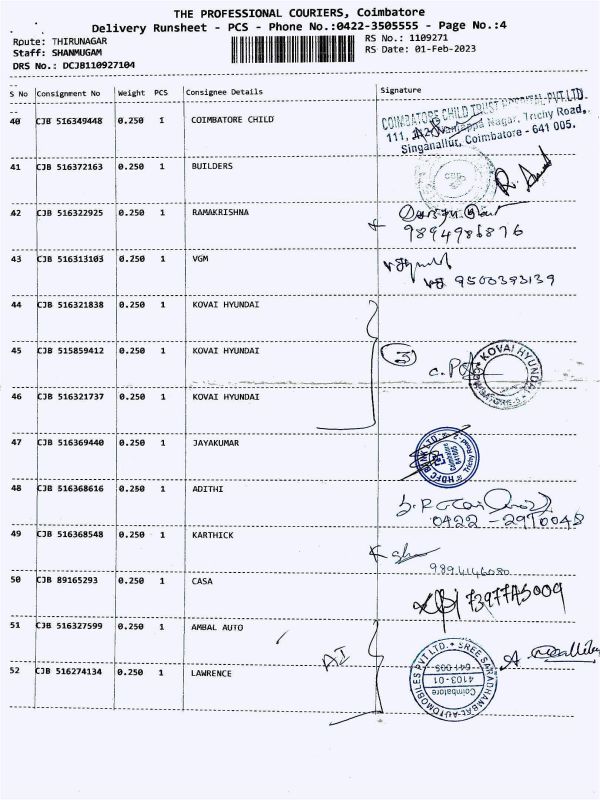 THE PROFESSIONAL COURIERS, Coimbatore
Delivery Runsheet - PCS - Phone No.:0422-3505555 - Page No.:4
Route: THIRUNAGAR
RS No.: 1109271
Staff: SHANMUGAM
RS Date: 01-Feb-2023
DRS No.: DCJB110927104
S No Consignment No Weight PCS Consignee Details Signature
40 CJB 516349448 0.250 1 COIMBATORE CHILD
COIMBATORE CHILD TRUST HOSPITAL PVT.LTD.
111, Nagar, Trichy Road,
Singanallur, Coimbatore - 641 005.
41 CJB 516372163 0.250 1 BUILDERS
42 CJB 516322925 0.250 1 RAMAKRISHNA
9894986876
43 CJB 516313103 0.250 1 VGM
9500393139
44 CJB 516321838 0.250 1 KOVAI HYUNDAI
45 CJB 515859412 0.250 1 KOVAI HYUNDAI
3
KOVAI HYUNDAI
46 CJB 516321737 0.250 1 KOVAI HYUNDAI
47 CJB 516369440 0.250 1 JAYAKUMAR
HDFC BANK LTD.
Trichy Road
Coimbatore
641005
48 CJB 516368616 0.250 1 ADITHI
0422 - 2910048
49 CJB 516368548 0.250 1 KARTHICK
9894146080
50 CJB 89165293 0.250 1 CASA
51 CJB 516327599 0.250 1 AMBAL AUTO
AI
SREE SARADHAMBAL AUTOMOBILES PVT LTD.
641 005
4103-01
Coimbatore
52 CJB 516274134 0.250 1 LAWRENCE